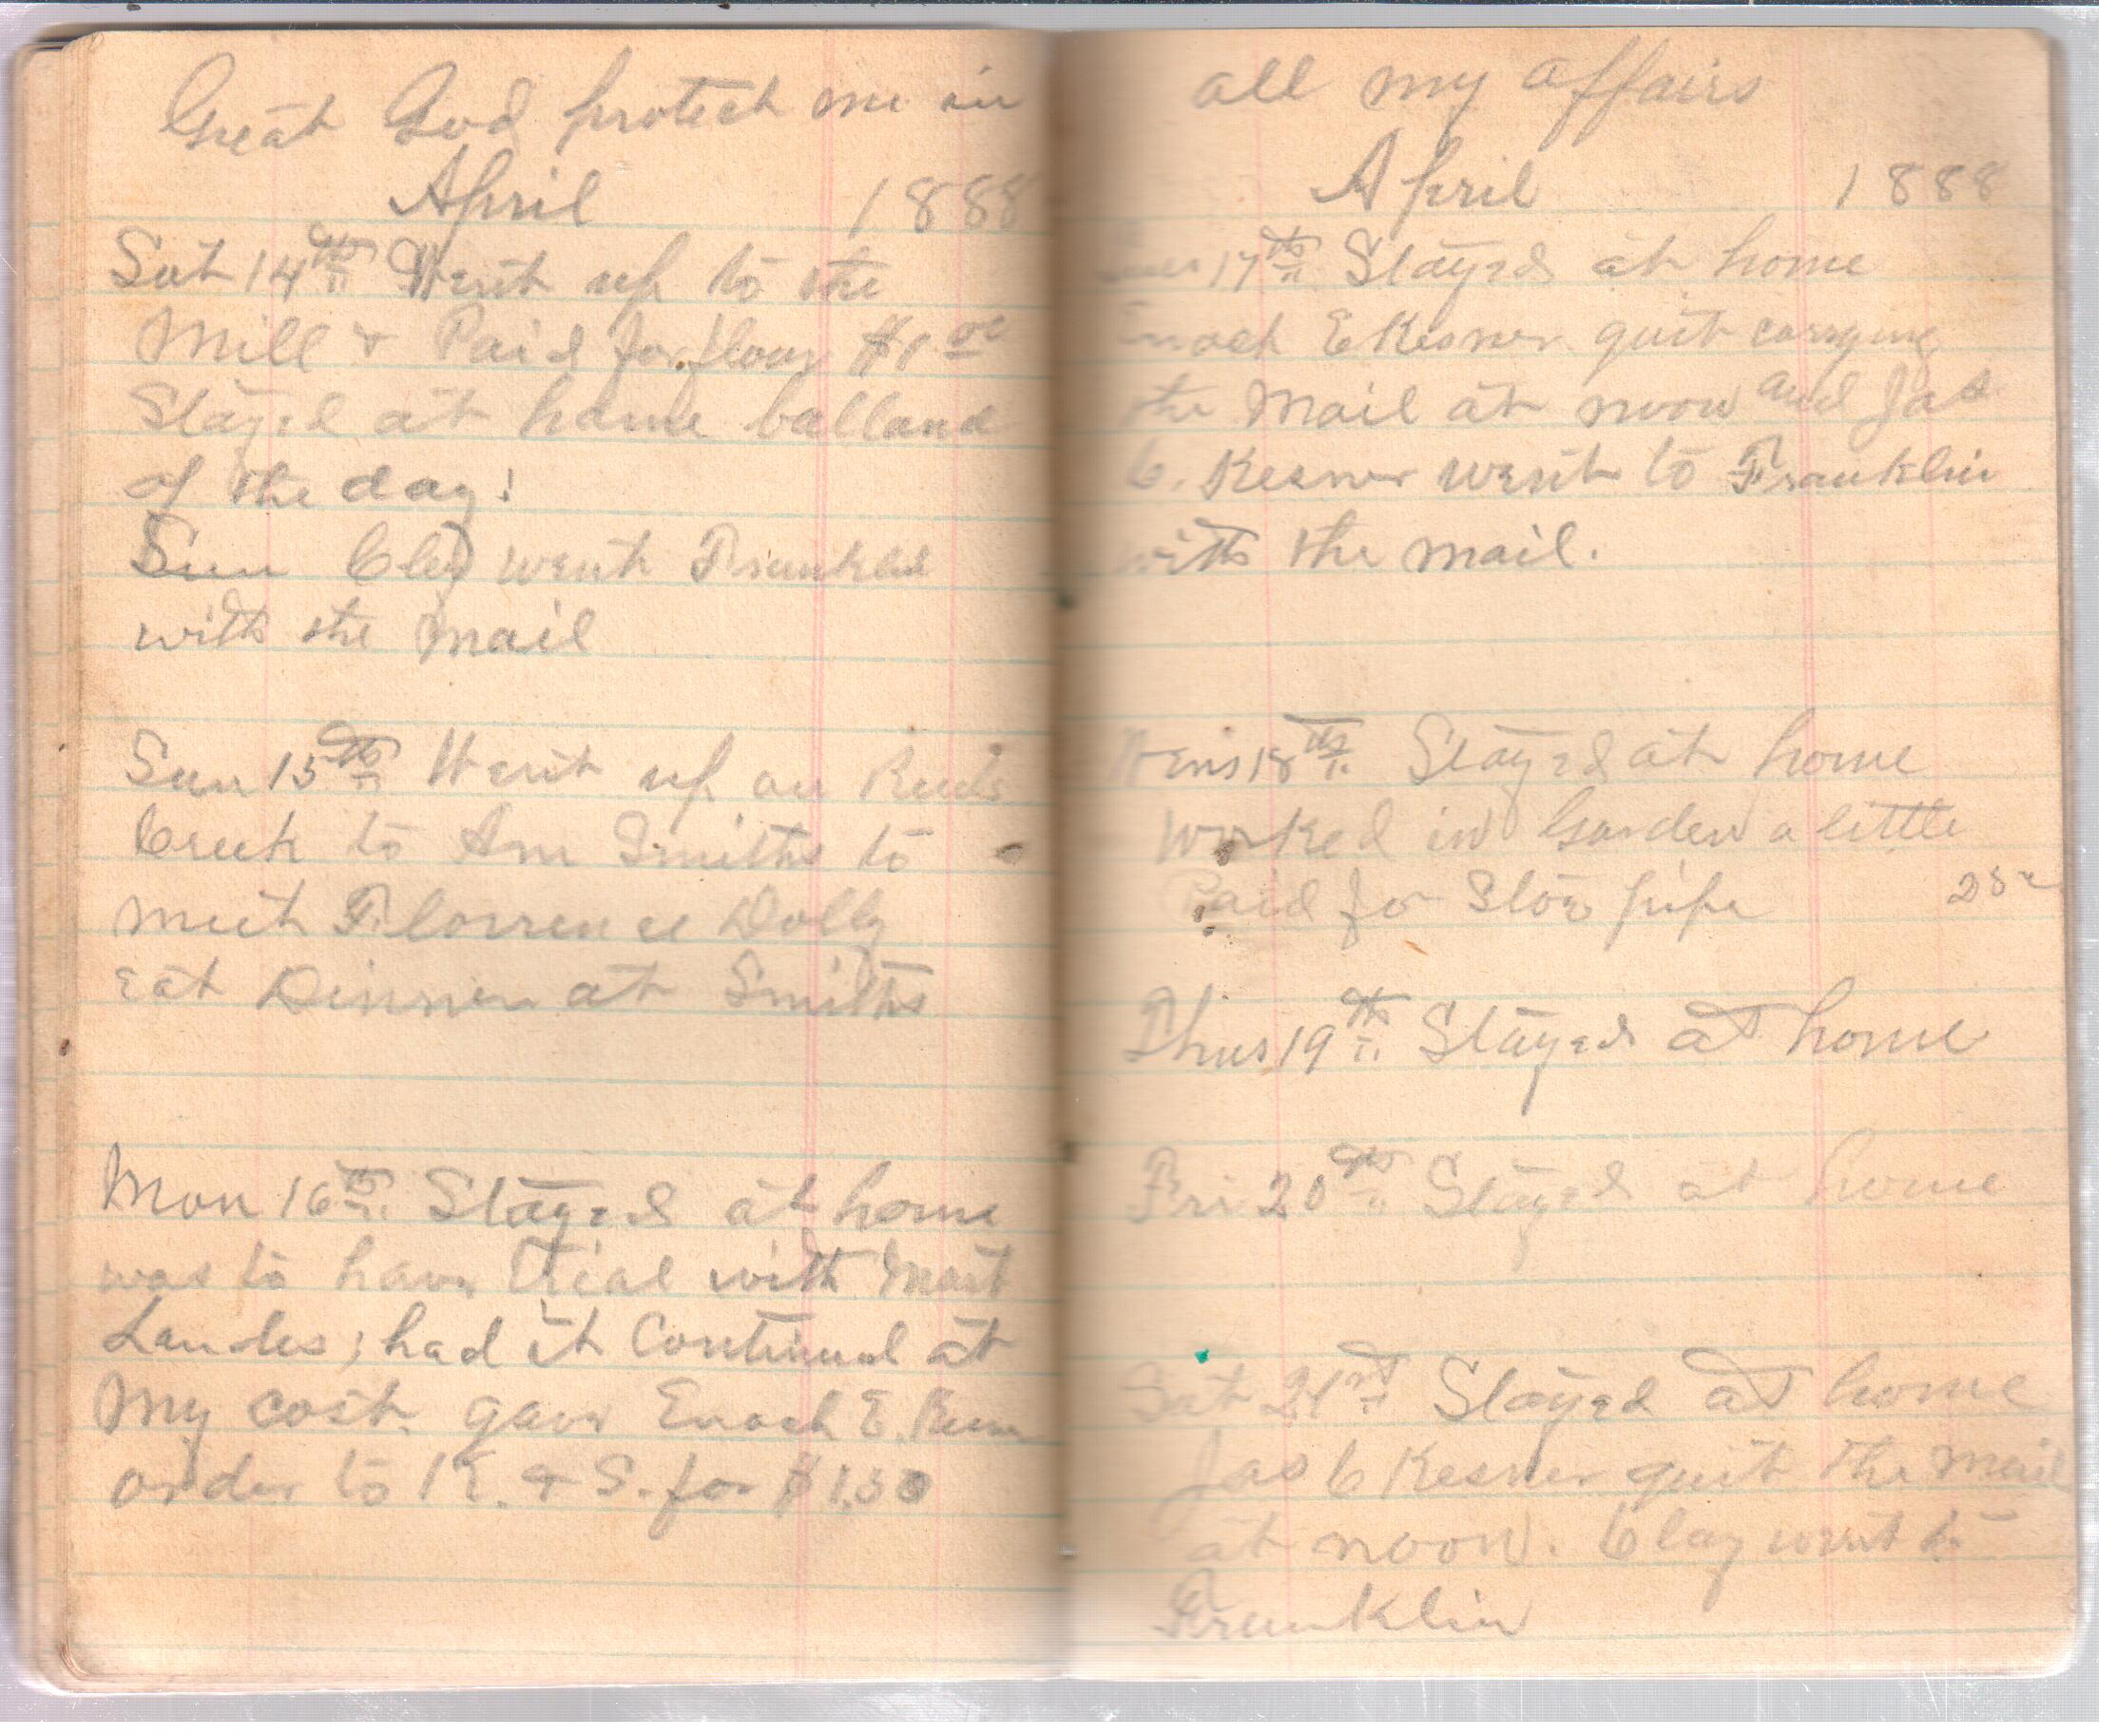 Great God protect me in
April 1888
Sat 14th Went up to the
Mill & Paid for flour $1 00
Stayed at home balland
of the day!
Sun Clay went Franklin
with the Mail
Sun 15th Went up on Reeds
Creek to Am Smiths to
meet Florrence Dolly
eat Dinner at Smiths
Mon 16th Stayed at home
was to have trial with Mort
Landes; had it Continued at
My cost gave Enoch E.
order to K. & S. for $1.50
all my affairs
April 1888
17th Stayed at home
Enoch E Kesner quit carrying
the Mail at noon and Jas
C. Kesner went to Franklin
with the mail.
Wens 18th Stayed at home
Worked in Garden a little
Paid for Stov pipe 25
Thus 19th Stayed at home
Fri 20th Stayed at home
Sat 21st Stayed at home
Jas C Kesner quit the Mail
at noon. Clay went to
Franklin